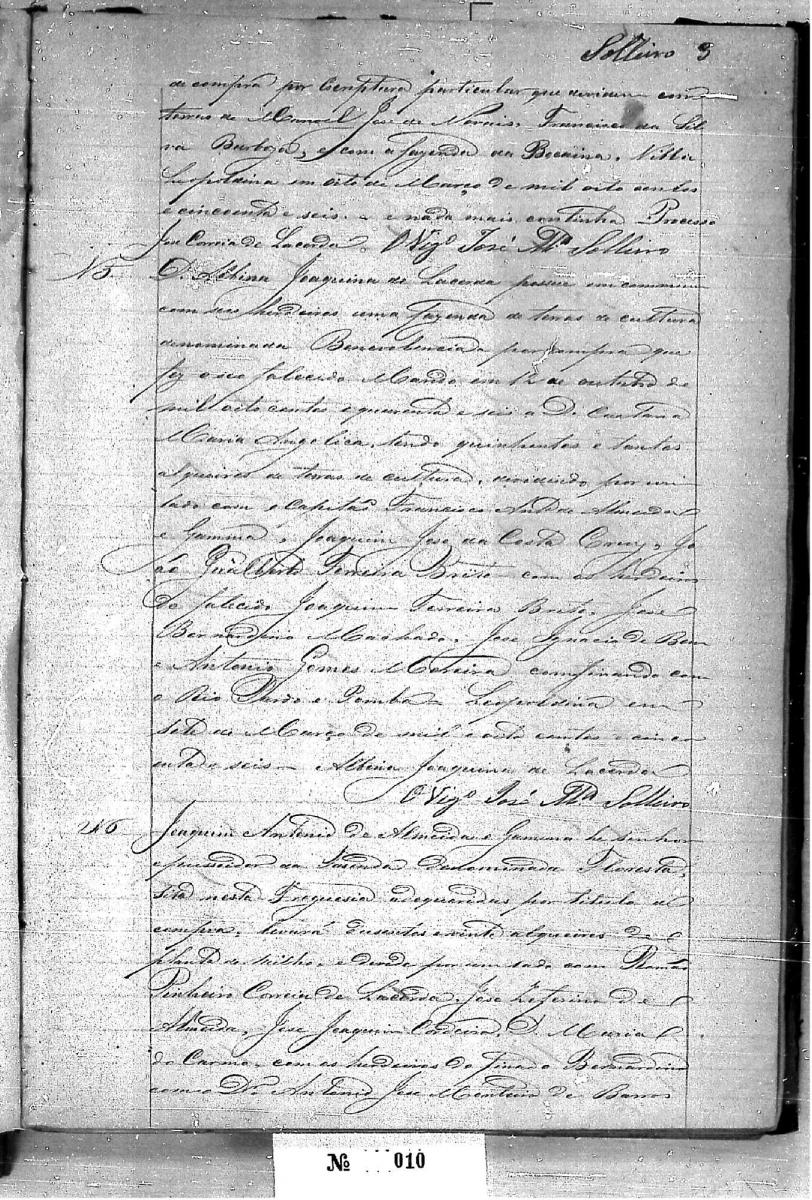 Solleiro 3
de compra por Escriptura particular que dividem com
terras de Manoel José de Morais, Francisco da Sil
va Barboza, e com a fazenda da Bocaina, Villa
Leopoldina em oito de Março de mil oito centos
e cincoenta e seis - e nada mais continha Processo
José Correia de Lacerda. O Vigº José Mª Solleiro
N5 D. Albina Joaquina de Lacerda possue em commum
com seus herdeiros uma fazenda de terras de cultura
denominada Benevolencia por compra que
fez o seo falecido Marido em 12 de outubro de
mil oito centos e quarenta e seis a D. Caetana
Maria Angelica, tendo quinhentos e tantos
alqueires de terras de cultura, dividindo por um
lado com o Capitão Francisco Antº de Almeida
e Gamma, Joaquim José da Costa Cruz, Jo
ão Gualberto Ferreira Brito com os herdeiros
do falecido Joaquim Ferreira Brito, José
Bernardino Machado, José Ignacio de
e Antonio Gomes Moreira confinando com
o Rio Pardo e Pomba - Leopoldina em
sete de Março de mil e oito centos e cinco
enta e seis - Albina Joaquina de Lacerda
O Vigº José Mª Solleiro
N6 Joaquim Antonio de Almeida e Gamma he senhor
e possuidor da Fasenda denominada Floresta,
sita nesta Freguesia adequeridas por titulo de
compra, levará dusentos e vinte alqueires de
planta de milho, e devide por um lado com Romão
Pinheiro Correia de Lacerda, José Zeferino de
Almeida, José Joaquim Cordeiro, D. Maria
do Carmo, com os herdeiros do finado Bernardino
com o Dr. Antonio José Monteiro de Barros
Nº 010